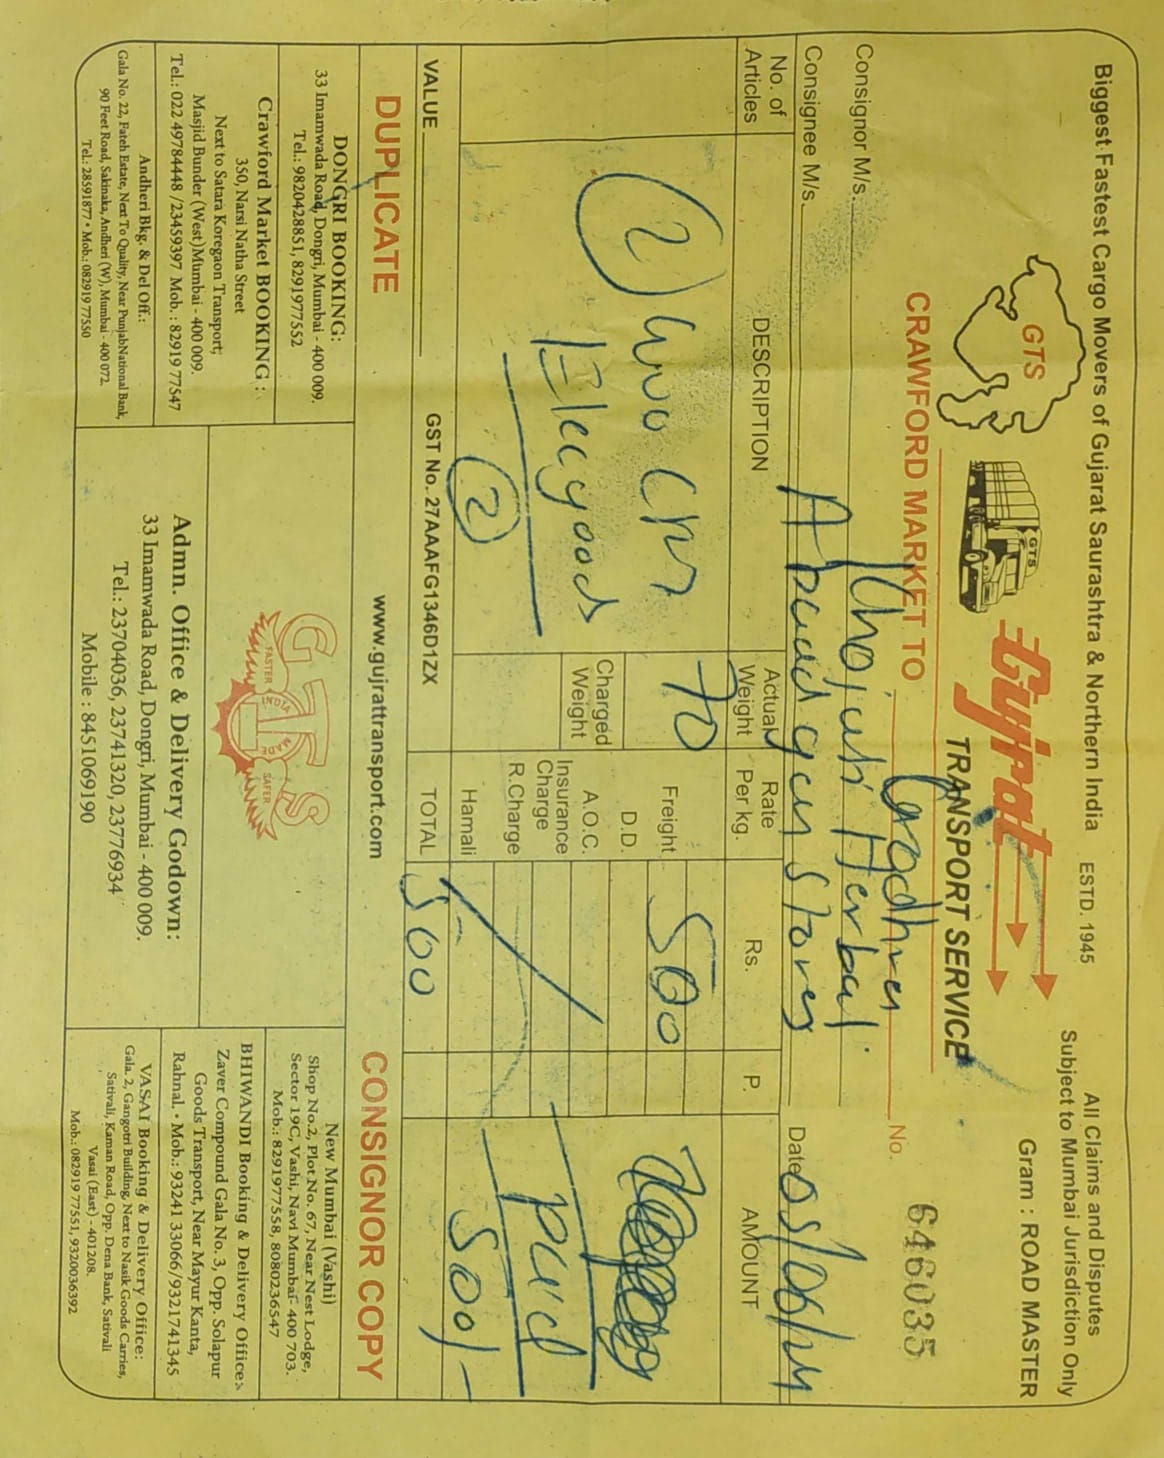 Biggest Fastest Cargo Movers of Gujarat Saurashtra & Northern India ESTD. 1945
All Claims and Disputes
Subject to Mumbai Jurisdiction Only
Gram : ROAD MASTER
GTS
GTS
Gujrat
TRANSPORT SERVICE
CRAWFORD MARKET TO Godhra
No. 646035
Consignor M/s. Khojati Herbal
Consignee M/s. Stores
Date 05/06/24
No. of Articles
DESCRIPTION
Actual Weight
Rate Per kg.
Rs.
P.
AMOUNT
2
70
Freight 500
D.D.
Elecgoods
Charged Weight
A.O.C.
Insurance Charge
R.Charge
Paid
2
Hamali
500/-
TOTAL 500
VALUE
GST No. 27AAAFG1346D1ZX
DUPLICATE
www.gujrattransport.com
CONSIGNOR COPY
DONGRI BOOKING:
33 Imamwada Road, Dongri, Mumbai - 400 009.
Tel.: 9820428851, 8291977552
Crawford Market BOOKING :
350, Narsi Natha Street
Next to Satara Koregaon Transport;
Masjid Bunder (West)Mumbai - 400 009.
Tel.: 022 49784448 /23459397 Mob. : 82919 77547
Andheri Bkg. & Del Off.:
Gala No. 22, Fateh Estate, Next To Quality, Near PunjabNational Bank,
90 Feet Road, Sakinaka, Andheri (W), Mumbai - 400 072.
Tel.: 28591877 • Mob.: 082919 77550
GTS
FASTER
INDIA
MADE
SAFER
Admn. Office & Delivery Godown:
33 Imamwada Road, Dongri, Mumbai - 400 009.
Tel.: 23704036, 23741320, 23776934
Mobile : 8451069190
New Mumbai (Vashi)
Shop No.2, Plot No. 67, Near Nest Lodge,
Sector 19C, Vashi, Navi Mumbai- 400 703.
Mob.: 8291977558, 8080236547
BHIWANDI Booking & Delivery Office:
Zaver Compound Gala No. 3, Opp. Solapur
Goods Transport, Near Mayur Kanta,
Rahnal. • Mob.: 93241 33066/9321741345
VASAI Booking & Delivery Office:
Gala. 2, Gangotri Building, Next to Nasik Goods Carries,
Sativali, Kaman Road, Opp. Dena Bank, Sativali
Vasai (East) - 401208.
Mob.: 082919 77551, 9320036392